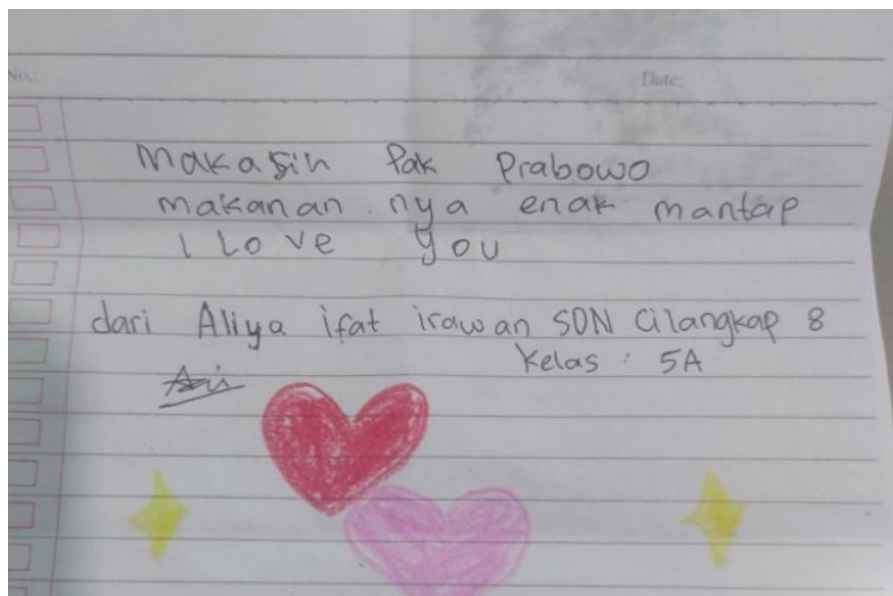 No.:
Date:
Makasih Pak Prabowo
makanan nya enak mantap
I Love you
dari Aliya ifat irawan SDN Cilangkap 8
Kelas : 5A